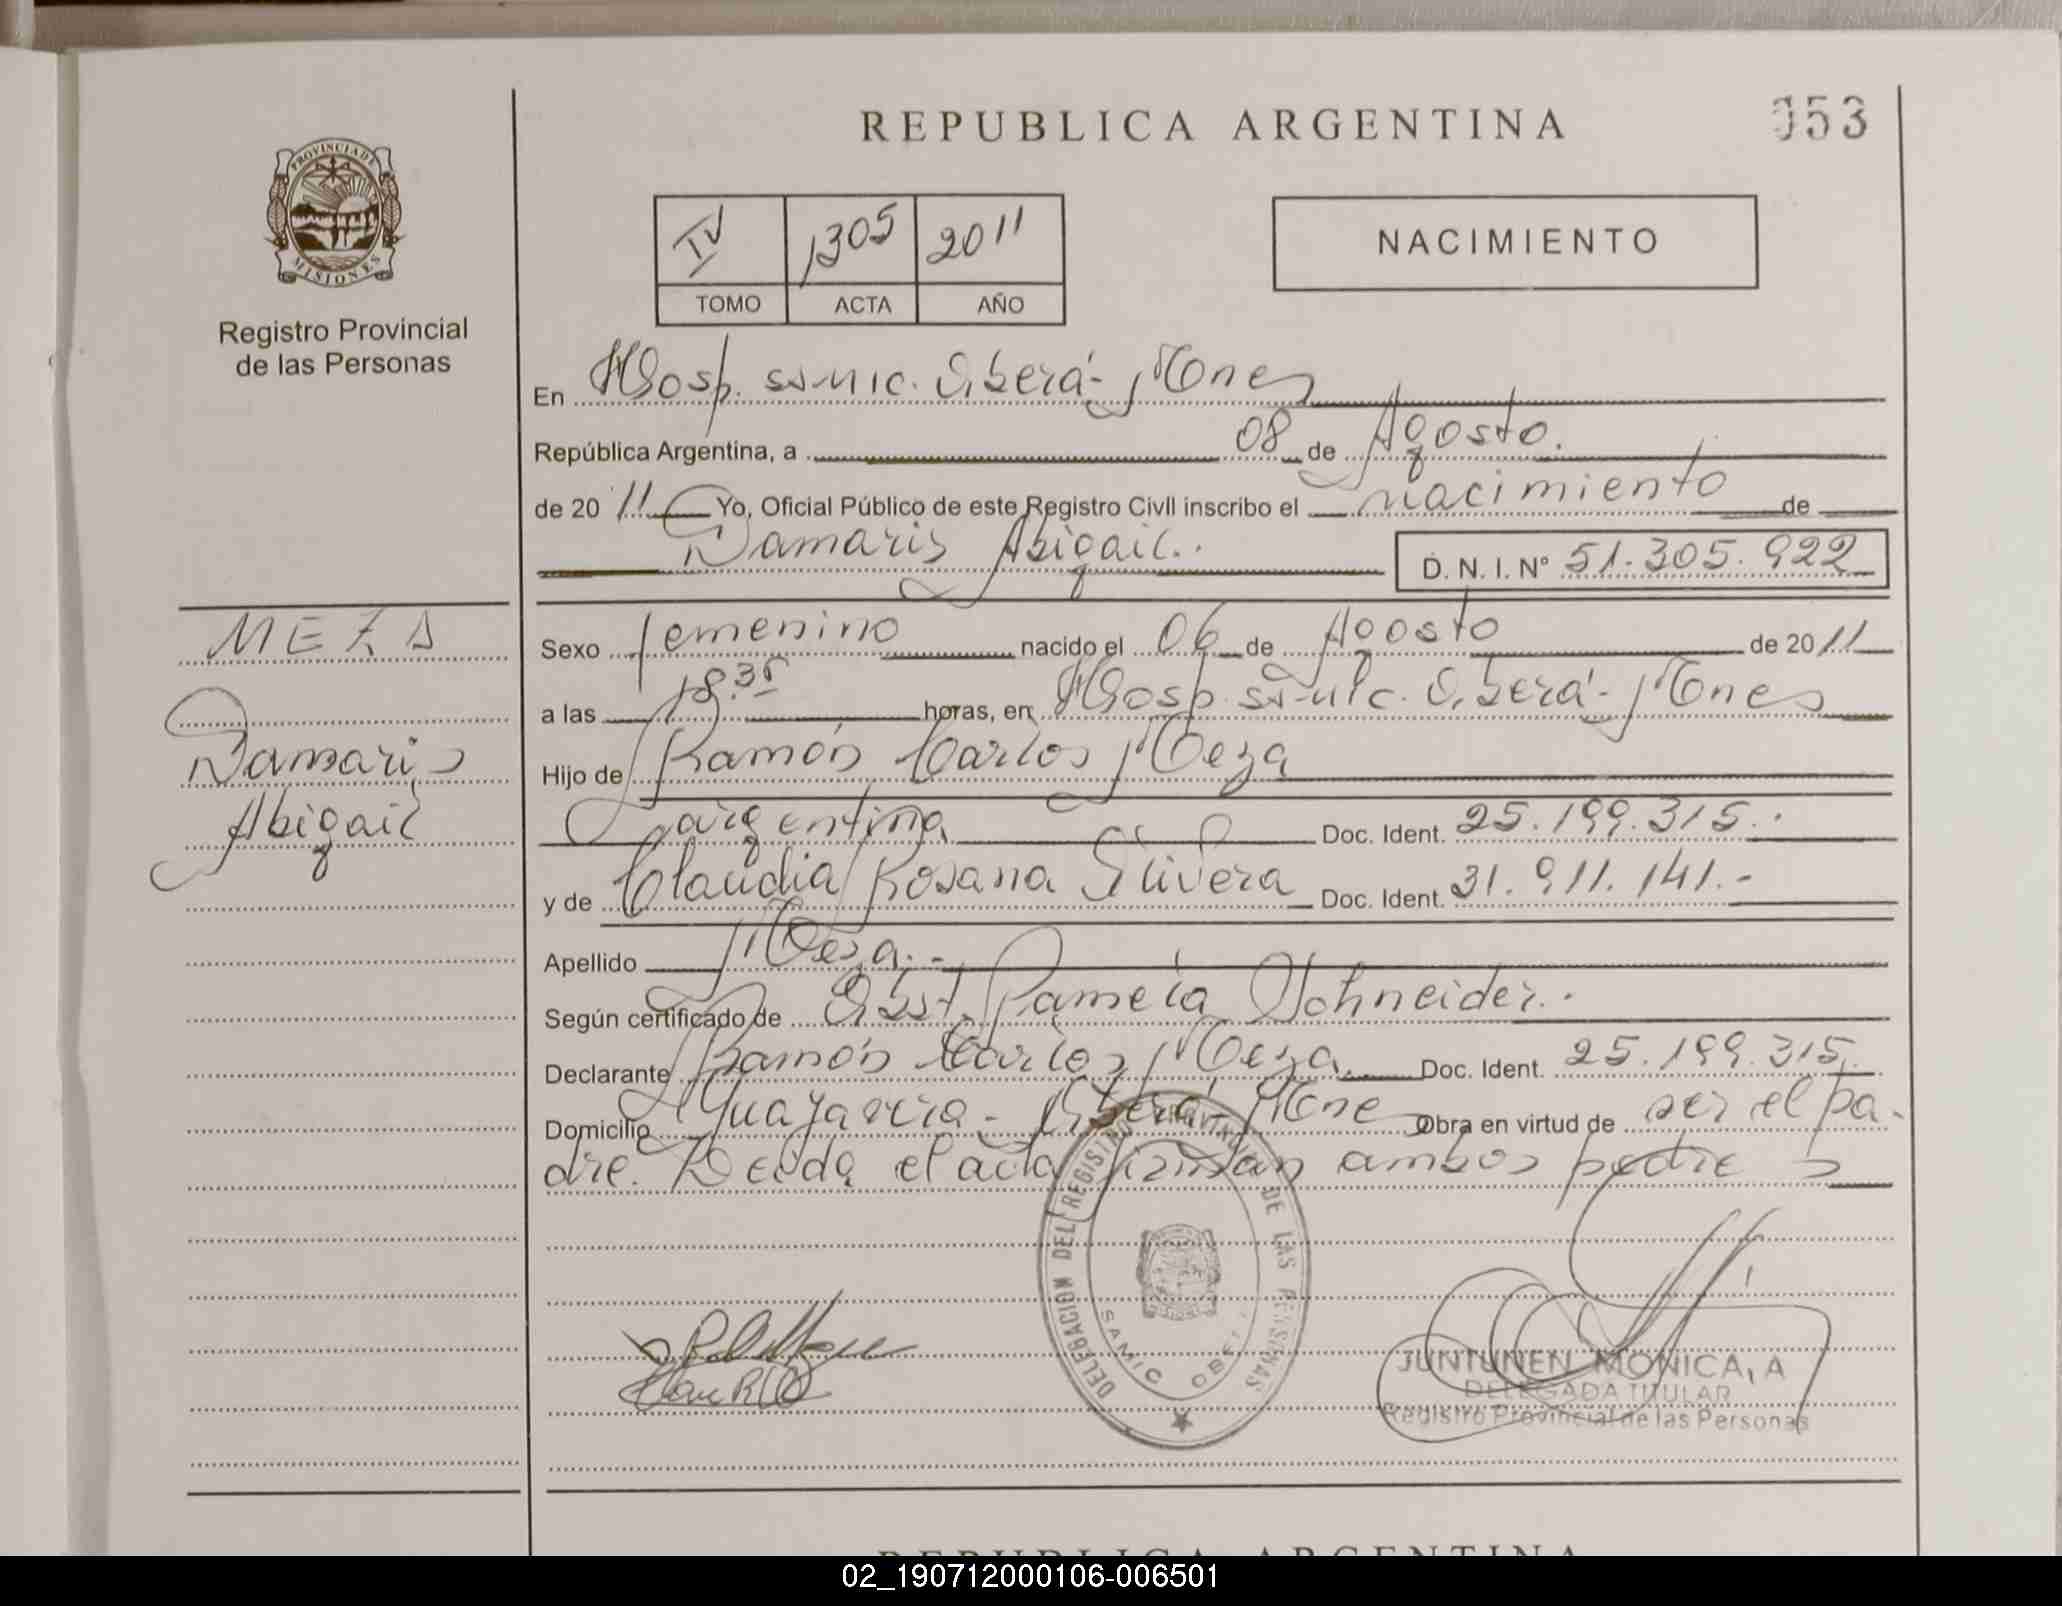 REPUBLICA ARGENTINA
053
PROVINCIA DE
MISIONES
Registro Provincial
de las Personas
IV 1305 2011
TOMO ACTA AÑO
NACIMIENTO
En Hosp. samic. Oberá- Mones
República Argentina, a 08 de Agosto.
de 20 11 Yo, Oficial Público de este Registro Civil inscribo el nacimiento de
Damaris Abigail.. D. N. I. Nº 51.305.922
MEZA
Damaris
Abigail
Sexo femenino nacido el 06 de Agosto de 20 11
a las 18.35 horas, en Hosp. samic. Oberá- Mones
Hijo de Ramón Carlos Meza
argentina Doc. Ident. 25.199.315.
y de Claudia Rosana Olivera Doc. Ident. 31.911.141.-
Apellido Meza.-
Según certificado de Obst. Pamela Schneider.
Declarante Ramón Carlos Meza Doc. Ident. 25.199.315.
Domicilio Oberá Obra en virtud de ser el pa-
dre. Leída el acta firman ambos padres
DELEGACION DEL REGISTRO PROVINCIAL DE LAS PERSONAS
SAMIC OBERA
JUNTUNEN MONICA, A
DELEGADA TITULAR
Registro Provincial de las Personas
REPUBLICA ARGENTINA
02_190712000106-006501